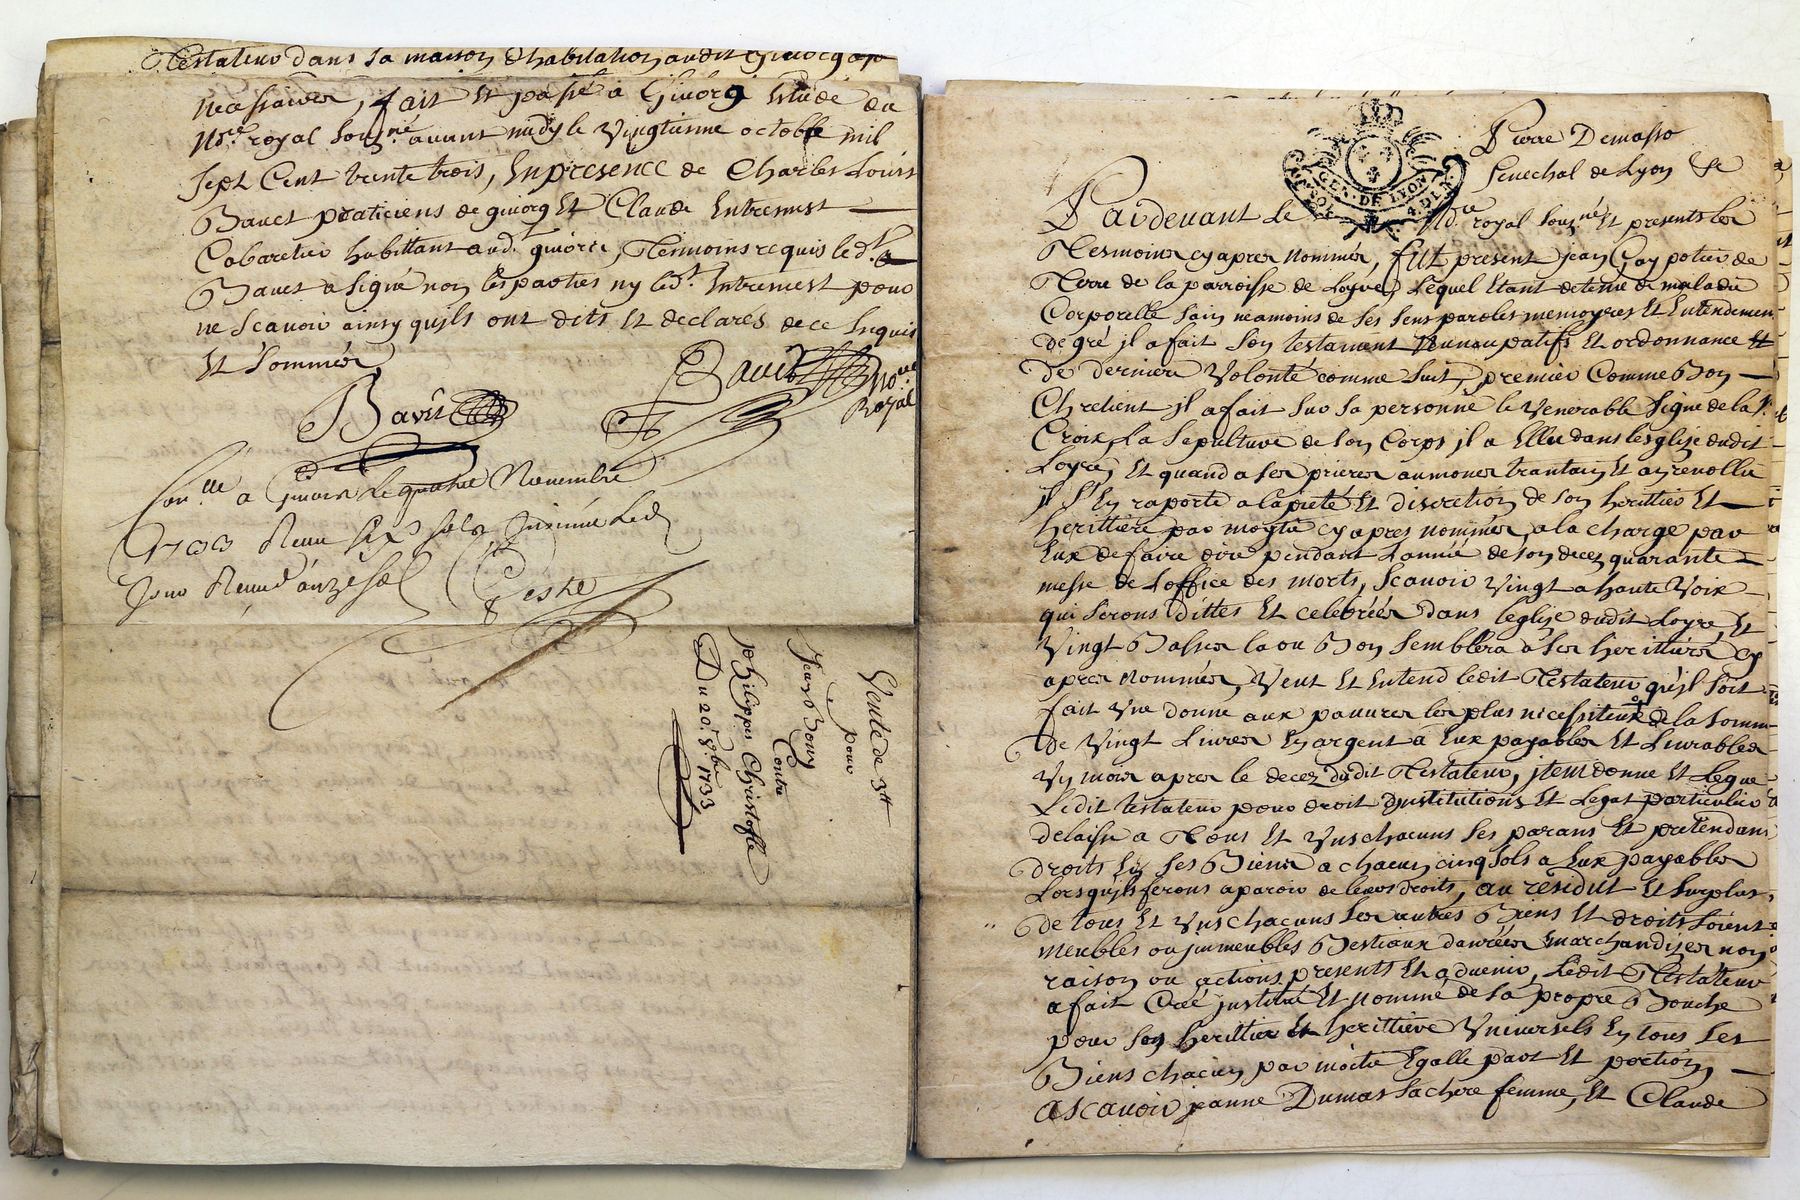 Testateur dans sa maison d'habitation audit Givorg
necessaires, fait Et passé a Givorg Etude du
No.re royal sous.né avant midy le Vingtieme octobre mil
sept Cent trente trois, En presence de Charles Louis
Bavet praticiens de givorg Et Claude Entremest
Cabaretier habittant aud.t givorg, Temoins requis led.t
Bavet a signé non les parties ny led.t Entremest pour
ne scavoir ainsy quils ont dits Et declarés de ce Enquis
Et sommés
Bavit
Bavit
No.re
Royal
Con.lle a Givors Le quatre Novembre
1733 Receu six sols
Jour Receu
Vente de 3tt
pour
Jean Bony
Contre
philippes Christofle
Du 20.e 8bre 1733
Pierre Demasso
Senechal de Lyon &c
GEN. DE LYON
4. D. LA F.
Pardevant Le No.re royal sous.né Et presents les
Tesmoins cy apres nommés, fut present jean Gay potier de
Terre de la parroisse de Loyre, Lequel Etant detenu de maladie
Corporelle sain neamoins de ses sens paroles memoyres Et Entendemen
de gré jl a fait son testament Nuncupatifs Et ordonnance Et
De derniere Volonté comme suit, premier Comme Bon
Chretient jl a fait sur sa personne le Venerable signe de la S.te
Croix, La sepulture de son Corps jl a Ellue dans l'esglize dudit
Loyre, Et quand a ses prieres aumones trantain Et
jl s'En raporte a la pieté Et discretion de son herittier Et
herittiere par moytié cy apres nommés, a la charge par
Eux de faire dire pendant L'année de son decez quarante
messe de L'office des morts, scavoir Vingt a haute Voix
qui serons dittes Et celebrées dans leglize dudit Loyre, Et
Vingt Basses la ou Bon semblera a ses herittiers cy
apres nommés, Veut Et Entend ledit Testateur qu'jl soit
fait Vne donne aux pauvres les plus necessiteux de la somme
de Vingt Livres En argent a Eux payables Et Livrables
Vn mois apres le decez dudit Testateur, jtem donne Et Legue
Ledit testateur pour droit D'jnstitutions Et Legat particulier
delaisse a Tous Et Vns chacuns ses parans Et pretendans
droits En ses Biens a chacun cinq sols a Eux payables
Lorsquils ferons aparoir de leurs droits, au residut Et surplus
de tous Et Vns chacuns ses autres Biens Et droits soient
meubles ou jmmeubles Bestiaux danrées marchandizes nom
raison ou actions presents Et advenir, Ledit Testateur
a fait Créé jnstitué Et Nommé de sa propre Bouche
pour son herittier Et herittiere Vniversels En tous ses
Biens chacun par moitié Egalle part Et portion
ascavoir jeanne Dumas sa chere femme, Et Claude